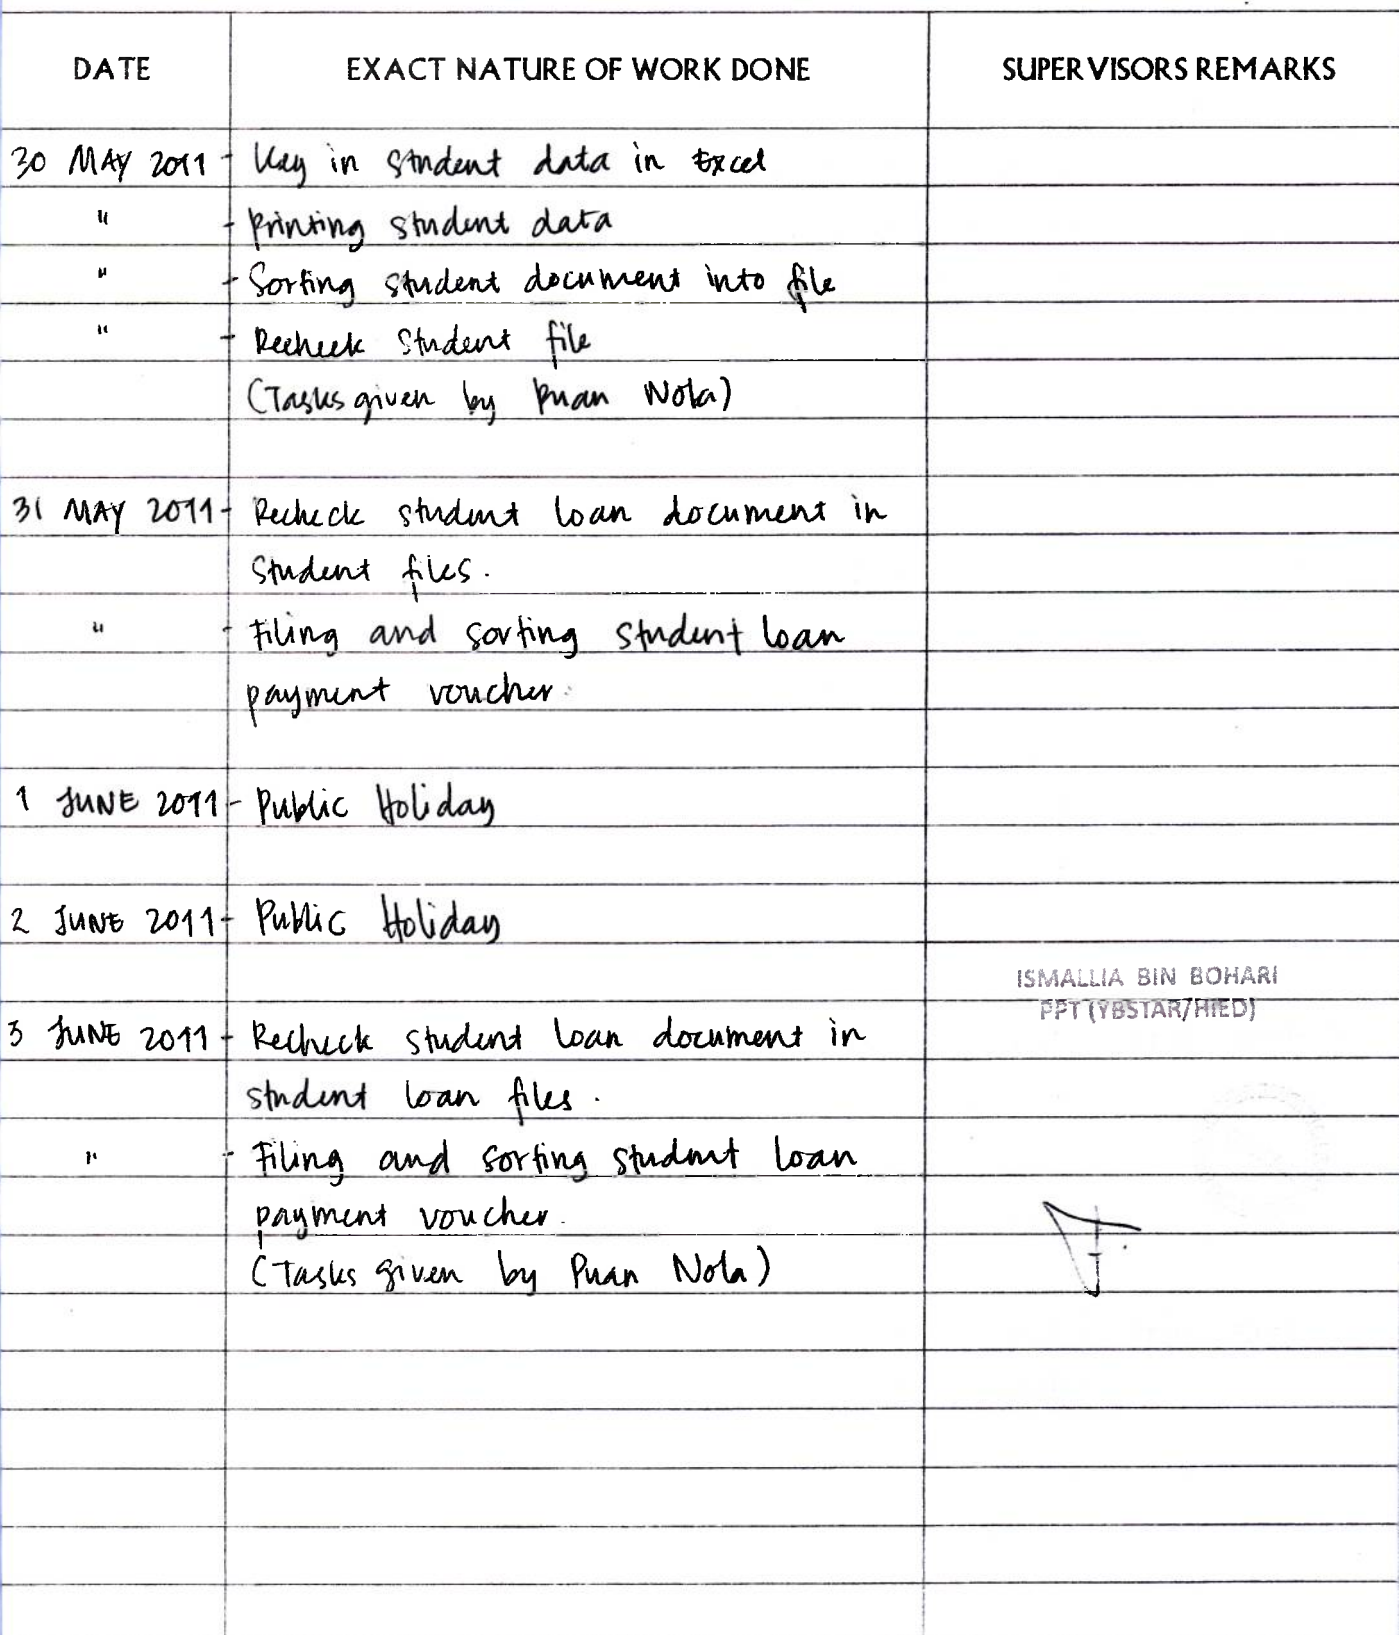 DATE EXACT NATURE OF WORK DONE SUPERVISORS REMARKS
30 MAY 2011 - Key in student data in Excel
" - Printing student data
" - Sorting student document into file
" - Recheck student file
(Tasks given by Puan Nola)
31 MAY 2011 - Recheck student loan document in
student files.
" - Filing and sorting student loan
payment voucher.
1 JUNE 2011 - Public Holiday
2 JUNE 2011 - Public Holiday
ISMALLIA BIN BOHARI
PPT (YBSTAR/HIED)
3 JUNE 2011 - Recheck student loan document in
student loan files.
" - Filing and sorting student loan
payment voucher.
(Tasks given by Puan Nola)